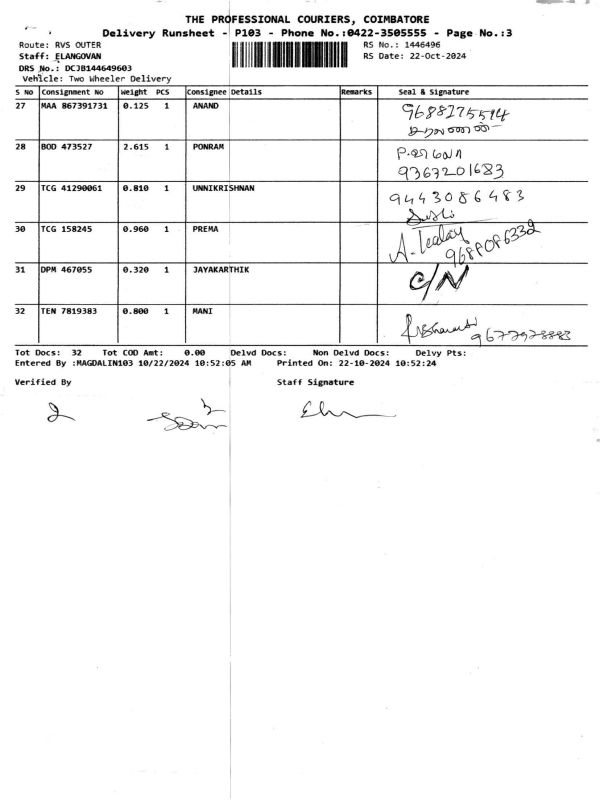 THE PROFESSIONAL COURIERS, COIMBATORE
Delivery Runsheet - P103 - Phone No.:0422-3505555 - Page No.:3
Route: RVS OUTER RS No.: 1446496
Staff: ELANGOVAN RS Date: 22-Oct-2024
DRS No.: DCJB144649603
Vehicle: Two Wheeler Delivery
S No Consignment No Weight PCS Consignee Details Remarks Seal & Signature
27 MAA 867391731 0.125 1 ANAND 9688275514
28 BOD 473527 2.615 1 PONRAM
9367201683
29 TCG 41290061 0.810 1 UNNIKRISHNAN 9443086483
30 TCG 158245 0.960 1 PREMA
31 DPM 467055 0.320 1 JAYAKARTHIK C/N
32 TEN 7819383 0.800 1 MANI
Tot Docs: 32 Tot COD Amt: 0.00 Delvd Docs: Non Delvd Docs: Delvy Pts:
Entered By :MAGDALIN103 10/22/2024 10:52:05 AM Printed On: 22-10-2024 10:52:24
Verified By Staff Signature